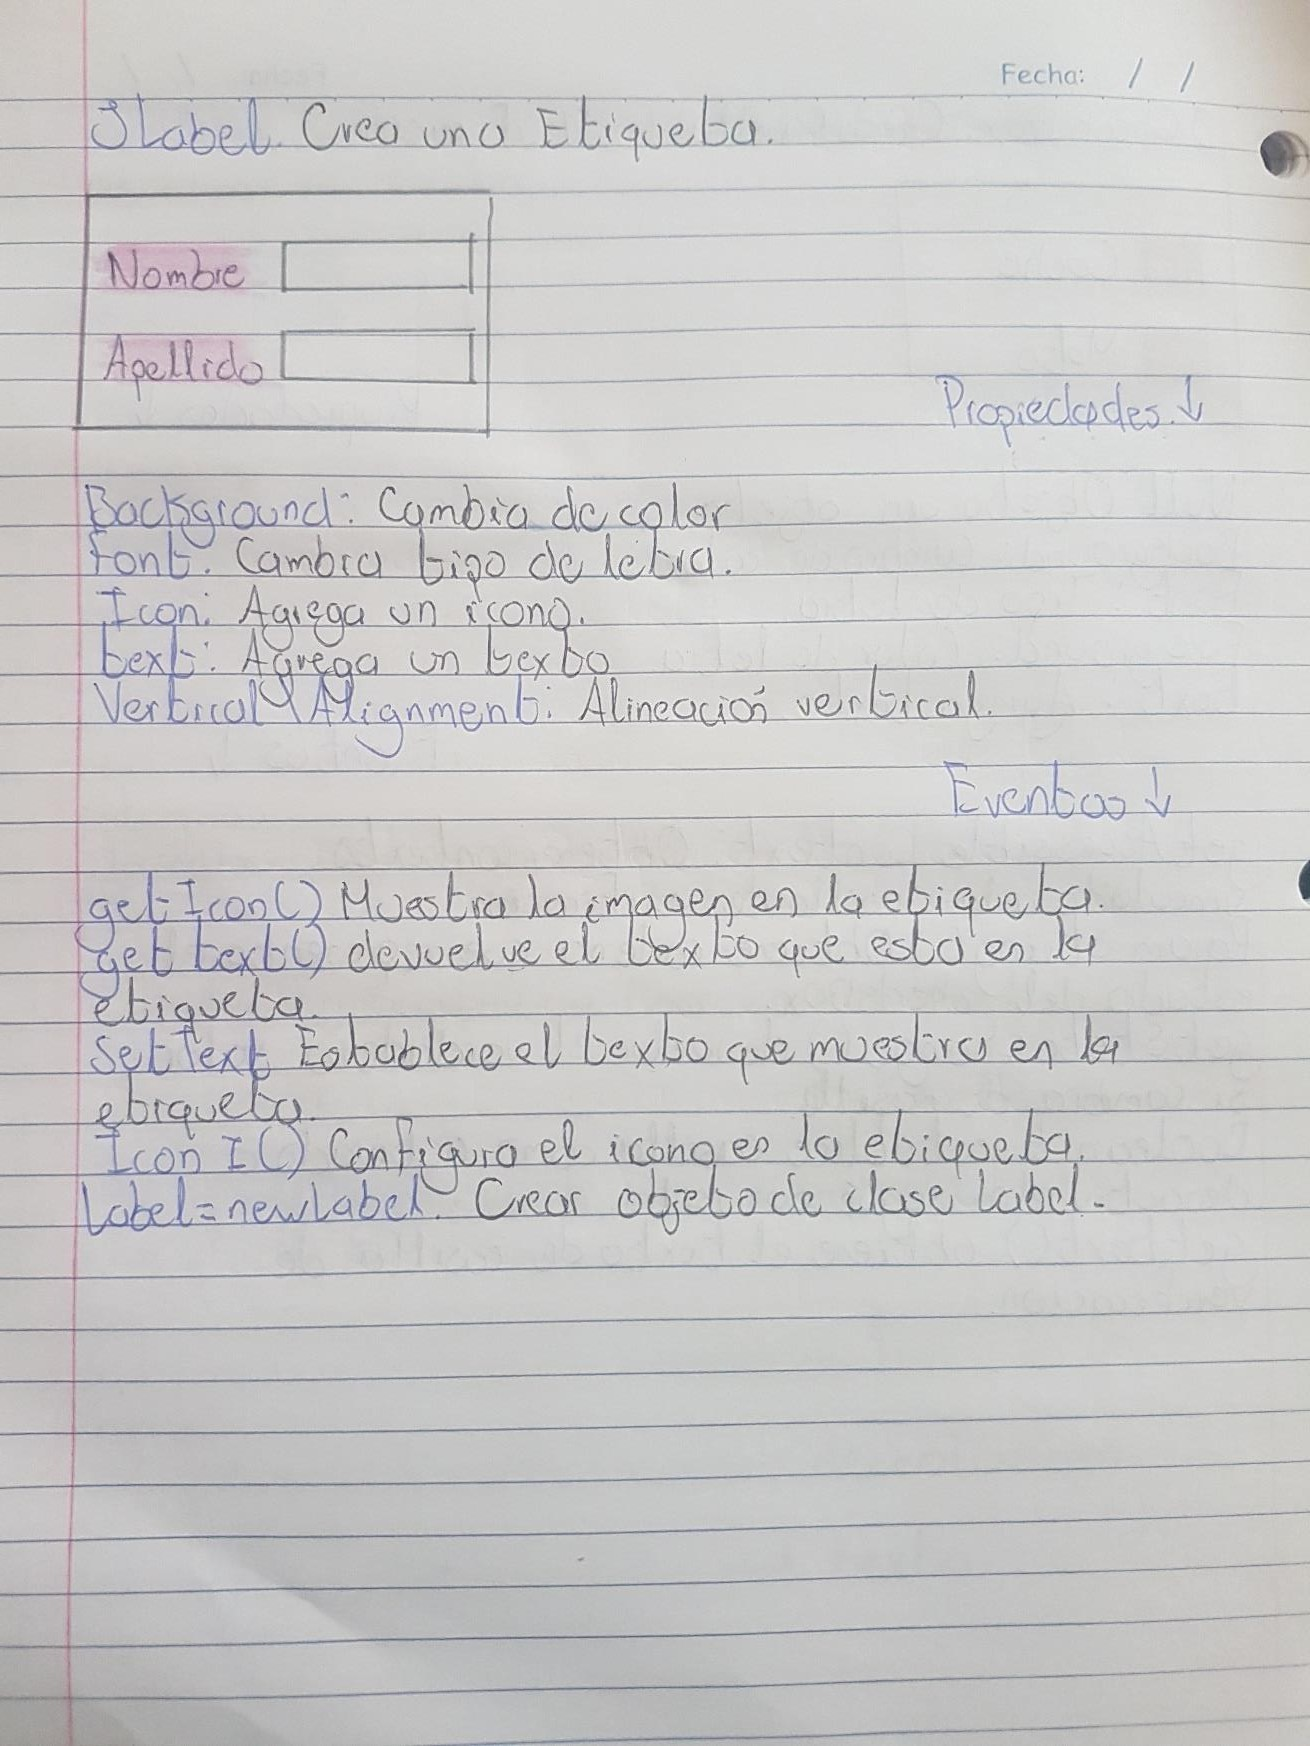 Fecha: / /
JLabel. Crea una Etiqueta.
Nombre
Apellido
Propiedades. ↓
Background: Cambia de color
font: Cambia tipo de letra.
Icon: Agrega un icono.
text: Agrega un texto
Vertical Alignment: Alineación vertical.
Eventos ↓
get Icon() Muestra la imagen en la etiqueta.
get text() devuelve el texto que esta en la
etiqueta.
Set Text Establece el texto que muestra en la
etiqueta.
Icon I() Configura el icono en la etiqueta.
Label=newLabel. Crear objeto de clase Label.